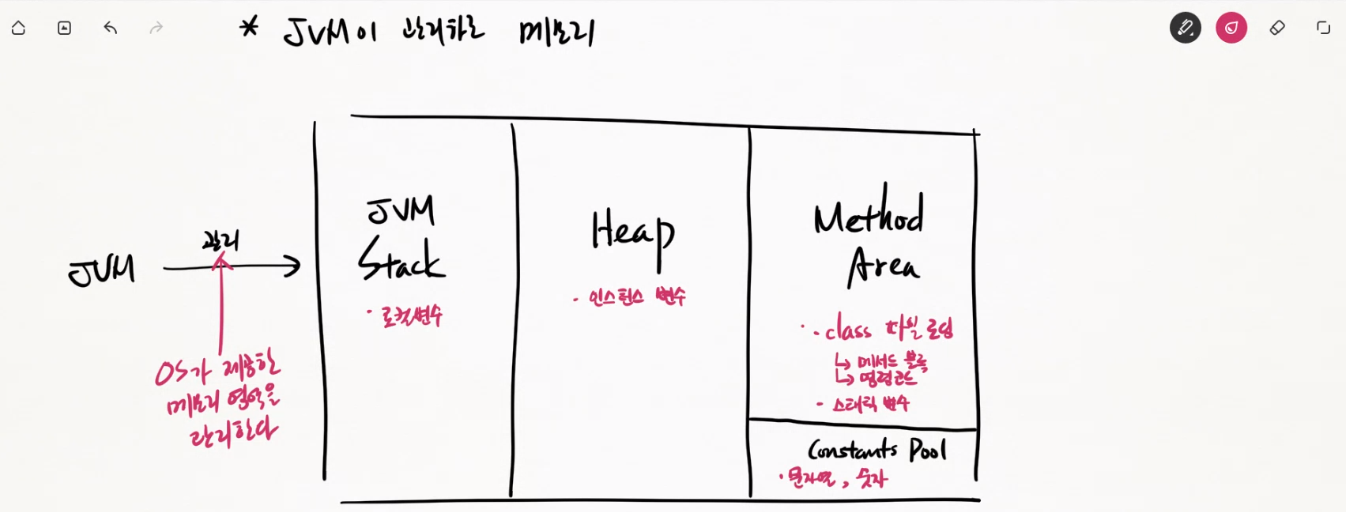 * JVM이 관리하는 메모리
JVM
관리
OS가 제공한
메모리 영역을
관리한다
JVM
Stack
· 로컬변수
Heap
· 인스턴스 변수
Method
Area
· class 파일 로딩
↳ 메서드 블록
↳ 명령코드
· 스태틱 변수
Constants Pool
· 문자열, 숫자